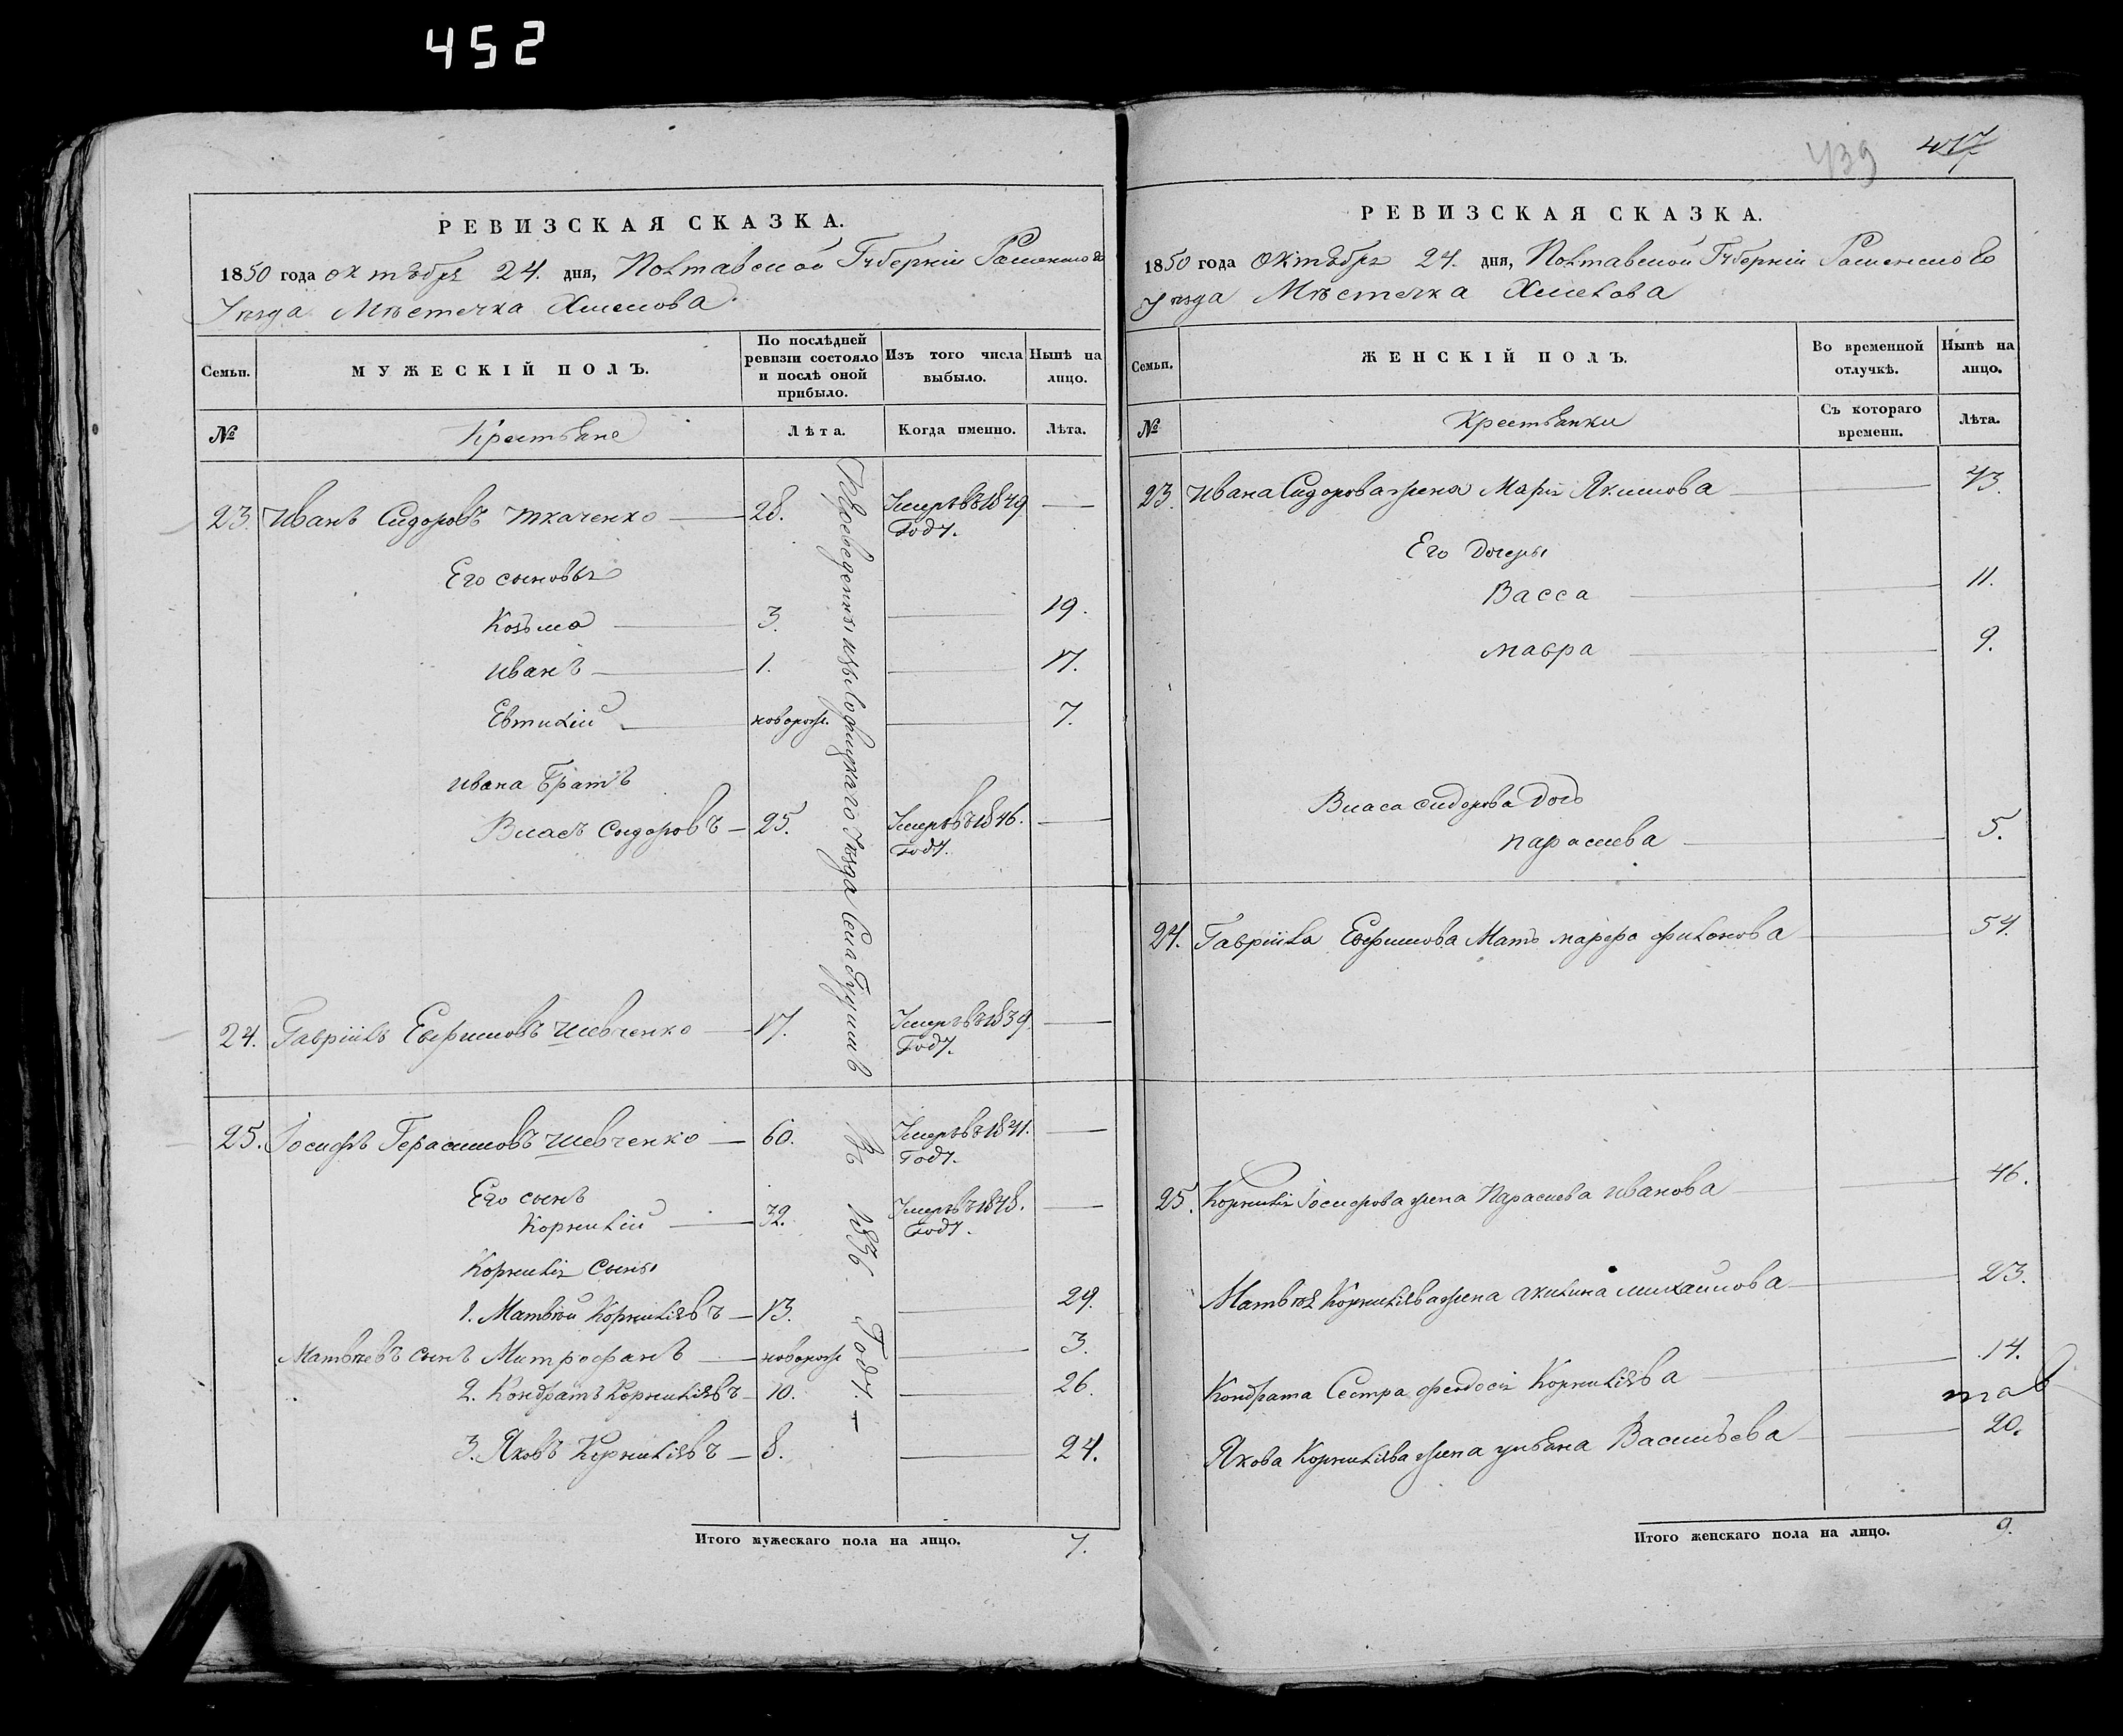 452
РЕВИЗСКАЯ СКАЗКА.
1850 года октября 24. дня, Полтавской Губерніи Роменского
Уезда Мѣстечка Хмелова
Семьи. МУЖЕСКІЙ ПОЛЪ. По послѣдней ревизіи состояло и послѣ оной прибыло. Изъ того числа выбыло. Нынѣ на лицо.
№ Крестьяне Лѣта. Когда именно. Лѣта.
23. Иванъ Сидоровъ Ткаченко — 28. Умеръ въ 1849 Году. —
Его сыновья
Козьма — 3. — 19.
Иванъ — 1. — 17.
Евтихій — новорож. — 7.
Ивана Братъ
Власъ Сидоровъ — 25. Умеръ въ 1846. Году. —
24. Гавріилъ Ефимовъ Шевченко — 17. Умеръ въ 1839 Году. —
25. Іосифъ Герасимовъ Шевченко — 60. Умеръ въ 1841. Году. —
Его сынъ
Корнилій — 32. Умеръ въ 1848. Году. —
Корнилія Сыны
1. Матвѣй Корниліевъ — 13. — 29.
Матвѣевъ сынъ Митрофанъ — новорож — 3.
2. Кондратъ Корниліевъ — 10. — 26.
3. Яковъ Корниліевъ — 8. — 24.
Уезда Села
въ 1836. Году. —
Итого мужескаго пола на лицо. 7.
439 417
РЕВИЗСКАЯ СКАЗКА.
1850 года Октября 24. дня, Полтавской Губерніи Роменского
Уезда Мѣстечка Хмелова
Семьи. ЖЕНСКІЙ ПОЛЪ. Во временной отлучкѣ. Нынѣ на лицо.
№ Крестьянки Съ котораго времени. Лѣта.
23. Ивана Сидорова жена Марія Якимова — 43.
Его Дочери
Васса — 11.
Мавра — 9.
Власа Сидорова Дочь
Параскева — 5.
24. Гавріила Ефимова Мать Марфа Филонова — 54.
25. Корнилія Іосифова жена Параскева Иванова — 46.
Матвѣя Корниліева жена Акилина Михайлова — 23.
Кондрата Сестра Феодосія Корниліева — 14.
Якова Корниліева жена Ульяна Васильева — 20.
Итого женскаго пола на лицо. 9.